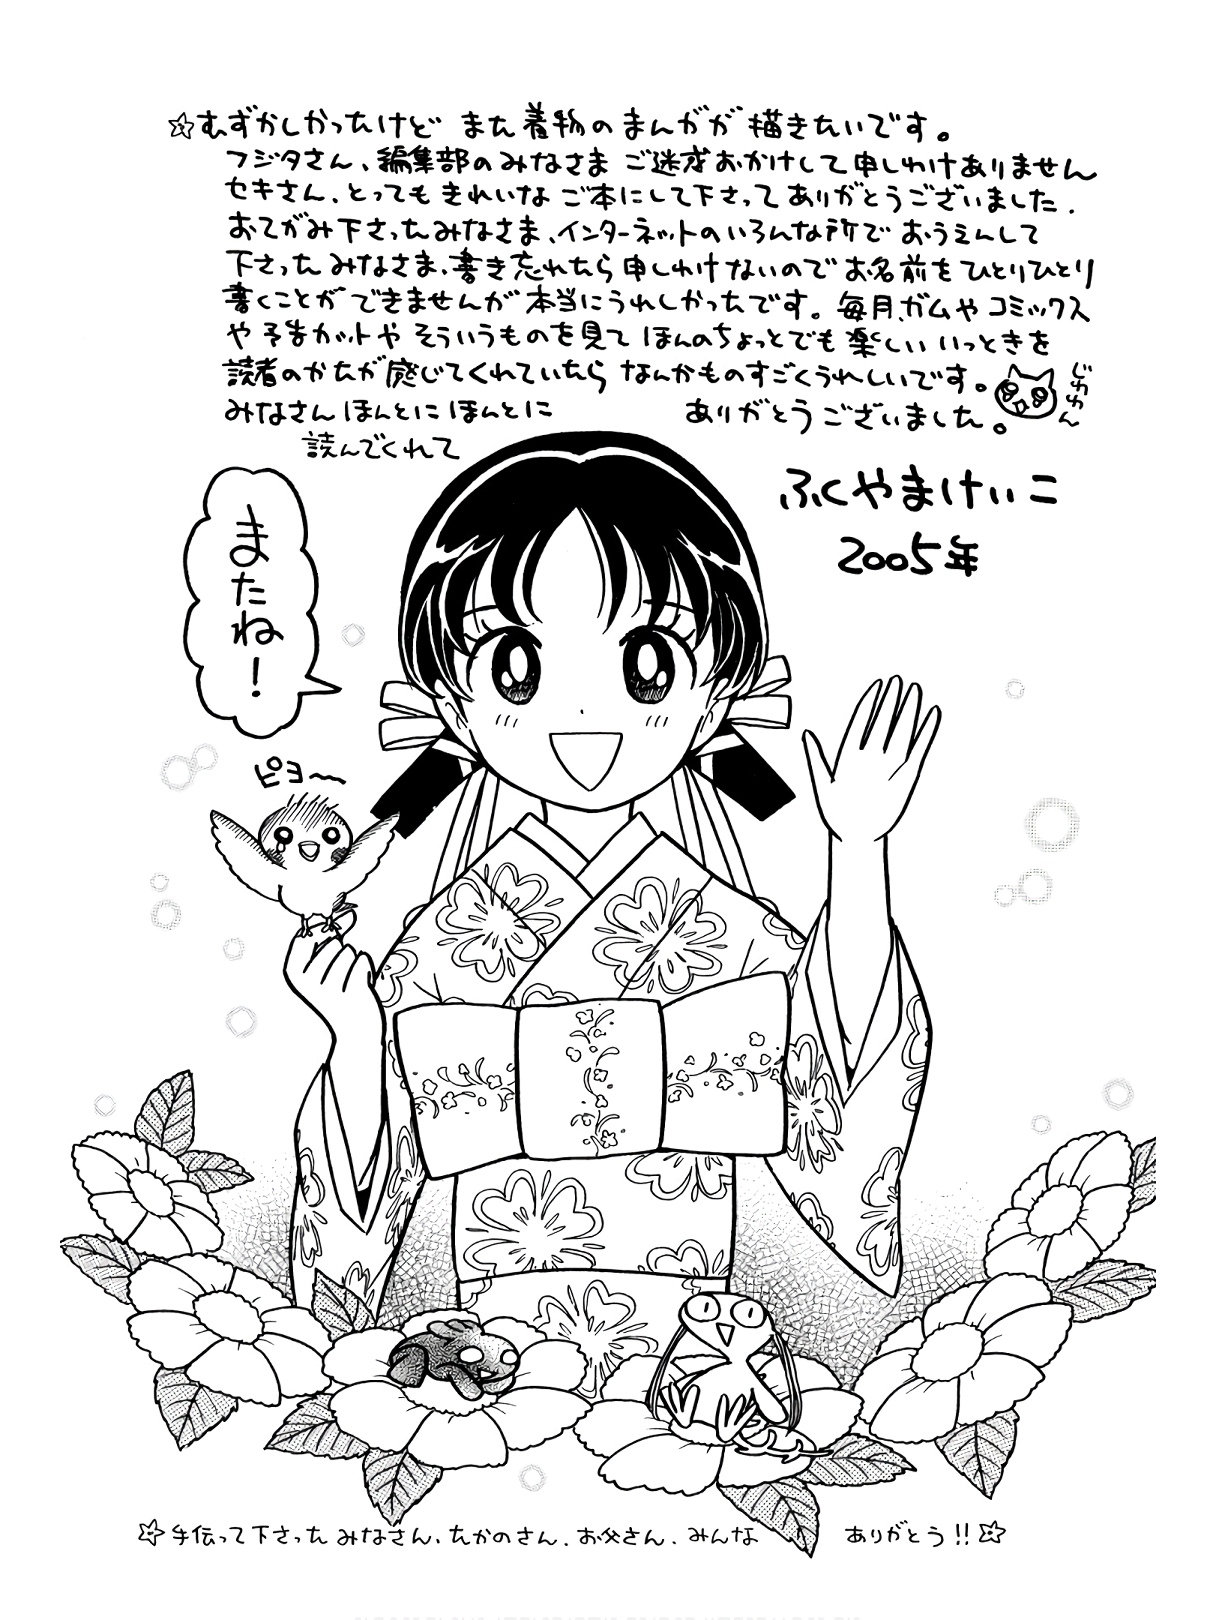 ☆むずかしかったけど また着物のまんがが描きたいです。
フジタさん、編集部のみなさま ご迷惑おかけして申しわけありません
セキさん、とってもきれいなご本にして下さってありがとうございました.
おてがみ下さったみなさま、インターネットのいろんな所で おうえんして
下さったみなさま、書き忘れたら申しわけないのでお名前をひとりひとり
書くことができませんが本当にうれしかったです。毎月、ガムやコミックス
や予告カットや そういうものを見て ほんのちょっとでも楽しいいっときを
読者のかたが感じてくれていたら なんかものすごくうれしいです。
じわわん
みなさんほんとにほんとに
読んでくれて
ありがとうございました。
ふくやまけいこ
2005年
またね!
ピヨ〜
☆手伝って下さったみなさん、たかのさん、お父さん、みんな ありがとう!!☆